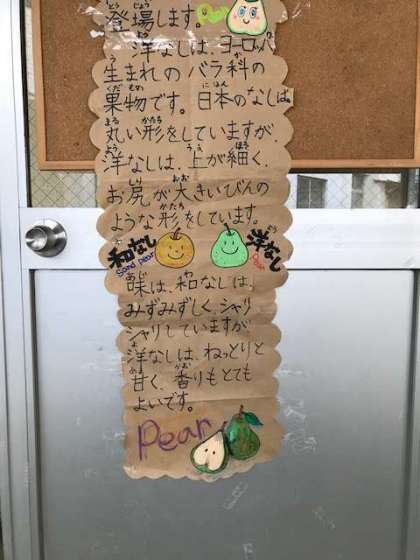 登場します。 Pear
洋なしは、ヨーロッパ
生まれのバラ科の
果物です。日本のなしは、
丸い形をしていますが、
洋なしは、上が細く、
お尻が大きいびんの
ような形をしています。
和なし 洋なし
Sand pear Pear
味は、和なしは、
みずみずしく、シャリ
シャリしていますが、
洋なしは、ねっとりと
甘く、香りもとても
よいです。
Pear